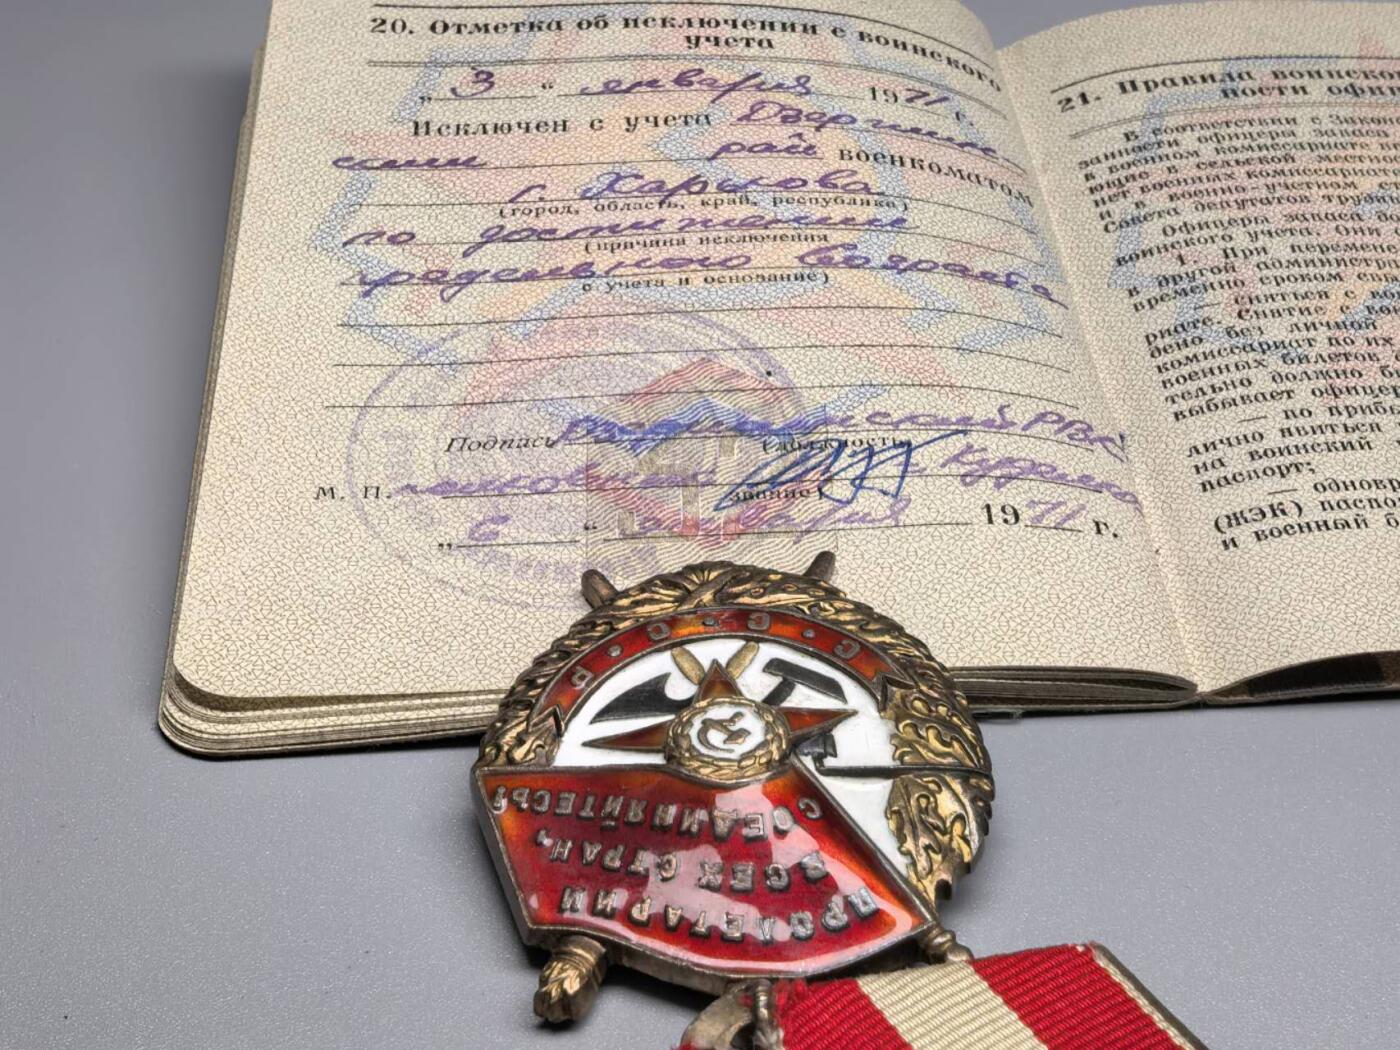 20. Отметка об исключении с воинского
учета
„ 3 “ января 1971 г.
Исключен с учета Дзержин-
ским рай военкоматом
г. Харькова
(город, область, край, республика)
по достижении
(причина исключения
предельного возраста
с учета и основание)
Подпись РВК
(должность)
М. П. звание)
„ 6 “ января 1971 г.
21. Правила воинско
ности офи
В соответствии с Зако
занности офицеры запаса
в военном комиссариате
ющие в сельской местнос
нет военных комиссариато
и в военно-учетном
Совета депутатов трудя
Офицеры запаса
воинского учета. Они
1. При перемене
в другой администр
временно сроком
— сняться с
риате. Снятие
дено без личной
комиссариат по их
военных билетов
тельно должно
выбывает офице
— по прибы
лично явиться
на воинский
паспорт;
— одновр
(ЖЭК) паспо
и военный б
С · С · С · Р
ПРОЛЕТАРИИ
ВСЕХ СТРАН,
СОЕДИНЯЙТЕСЬ!